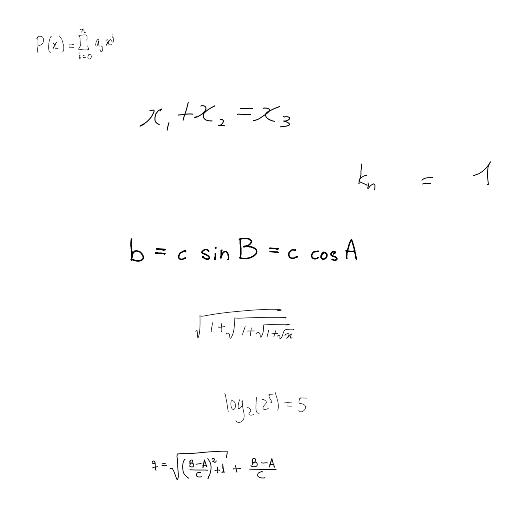 P(x) = \sum_{i=0}^{n} a_i x^i
x_1 + x_2 = x_3
k_n = 1
b = c sin B = c cos A
\sqrt{1 + \sqrt{1 + \sqrt{1 + \sqrt{x}}}}
log_2(2^5) = 5
q = \sqrt{(\frac{B-A}{C})^2 + 1} + \frac{B-A}{C}